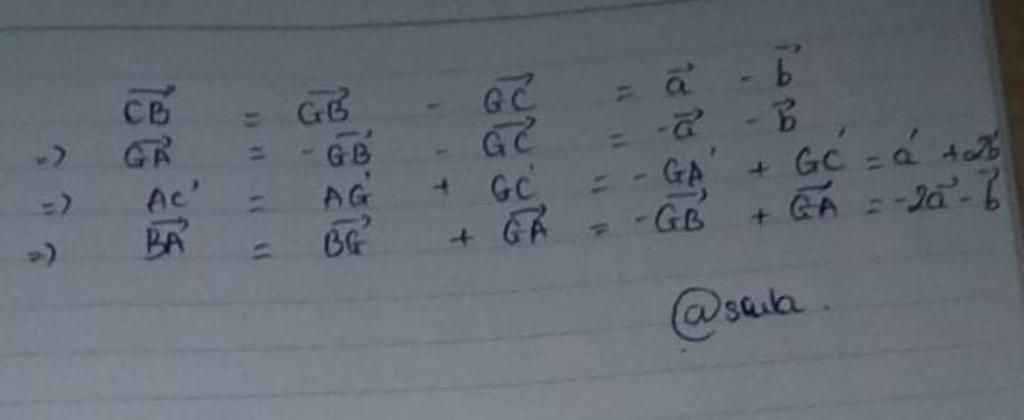 CB⃗ = GB⃗ - GC⃗ = a⃗ - b⃗
=> GA⃗ = - GB⃗ - GC⃗ = - a⃗ - b⃗
=> AC⃗ = AG⃗ + GC⃗ = - GA⃗ + GC⃗ = a⃗ + 2b⃗
=> BA⃗ = BG⃗ + GA⃗ = - GB⃗ + GA⃗ = - 2a⃗ - b⃗